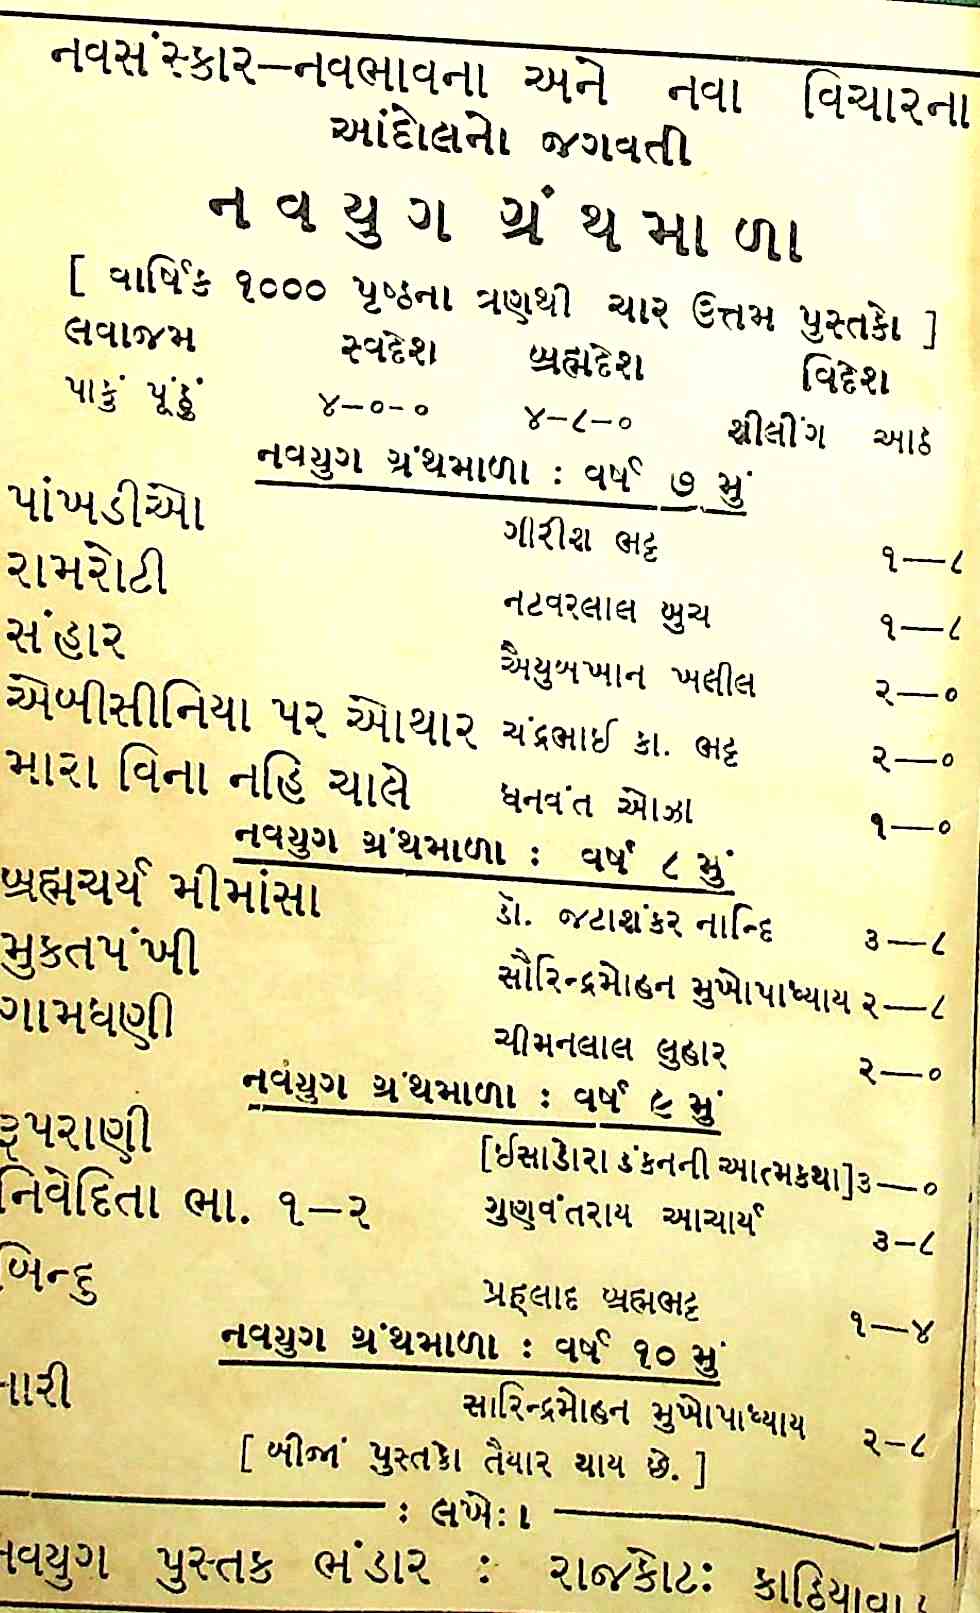 નવસંસ્કાર—નવભાવના અને નવા વિચારના
આંદોલનો જગવતી
નવયુગ ગ્રંથમાળા
[ વાર્ષિક ૧૦૦૦ પૃષ્ઠના ત્રણથી ચાર ઉત્તમ પુસ્તકો ]
લવાજમ સ્વદેશ બ્રહ્મદેશ વિદેશ
પાકું પૂંઠું ૪-૦-૦ ૪-૮-૦ શીલીંગ આઠ
નવયુગ ગ્રંથમાળા : વર્ષ ૭ મું
પાંખડીઓ ગીરીશ ભટ્ટ ૧—૮
રામરોટી નટવરલાલ બુચ ૧—૮
સંહાર ઐયુબખાન ખલીલ ૨—૦
એબીસીનિયા પર ઓથાર ચંદ્રભાઈ કા. ભટ્ટ ૨—૦
મારા વિના નહિ ચાલે ધનવંત ઓઝા ૧—૦
નવયુગ ગ્રંથમાળા : વર્ષ ૮ મું
બ્રહ્મચર્ય મીમાંસા ડૉ. જટાશંકર નાન્દિ ૩—૮
મુકતપંખી સૌરિન્દ્રમોહન મુખોપાધ્યાય ૨—૮
ગામધણી ચીમનલાલ લુહાર ૨—૦
નવયુગ ગ્રંથમાળા : વર્ષ ૯ મું
રૂપરાણી [ઈસાડોરા ડંકનની આત્મકથા] ૩—૦
નિવેદિતા ભા. ૧–૨ ગુણવંતરાય આચાર્ય ૩–૮
બિન્દુ પ્રહ્લાદ બ્રહ્મભટ્ટ ૧—૪
નવયુગ ગ્રંથમાળા : વર્ષ ૧૦ મું
નારી સારિન્દ્રમોહન મુખોપાધ્યાય ૨–૮
[ બીજાં પુસ્તકો તૈયાર થાય છે. ]
: લખો :
નવયુગ પુસ્તક ભંડાર : રાજકોટ: કાઠિયાવાડ